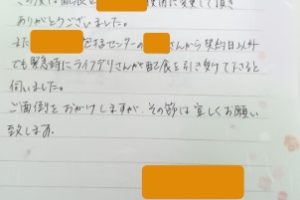 ありがとうございました。
また 包括センターの さんから契約日以外
でも緊急時にライフデリさんが配食を引き受けて下さると
伺いました。
ご面倒をおかけしますが、その節は宜しくお願い
致します。